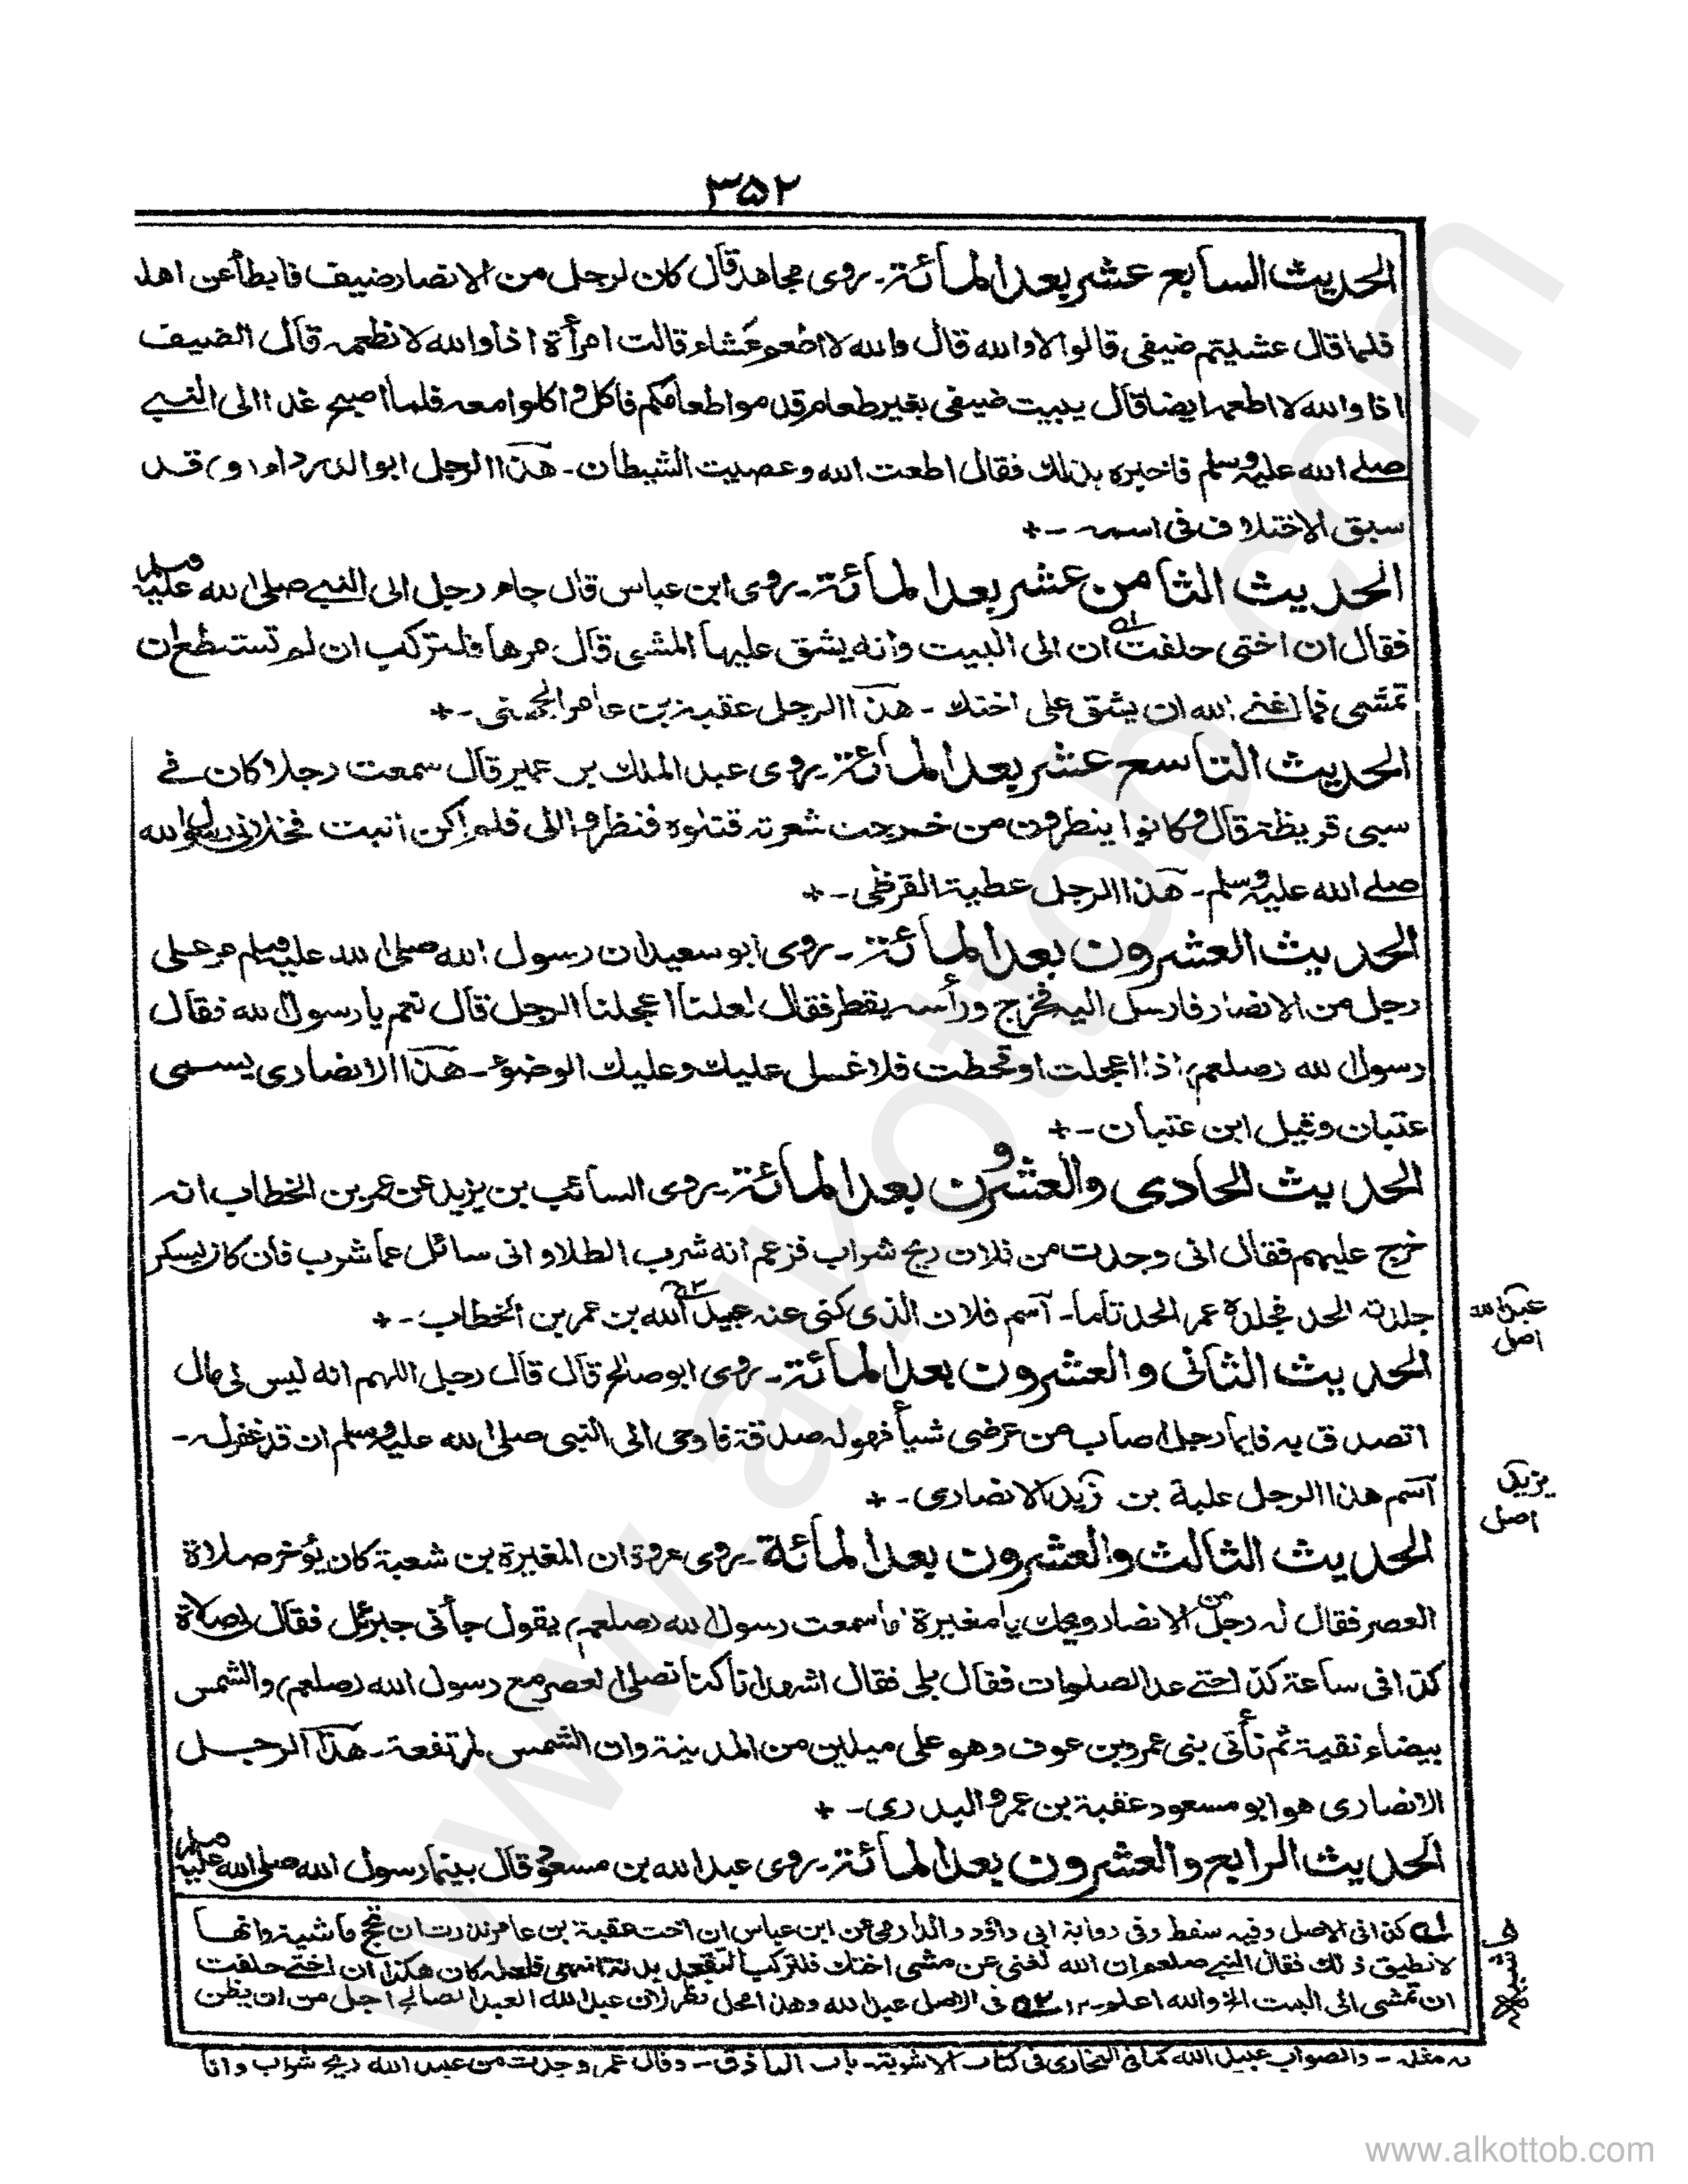 ۳۵۲
الحديث السابع عشر بعد المائة۔ روى مجاهد قال كان لرجل من الانصار ضيف فابطأ عن اهله
فلما قال عشيتم ضيفى قالوا لا والله قال والله لا اطعم عشاء قالت امرأة اذا والله لا نطعمه قال الضيف
اذا والله لا اطعمه ايضا قال يبيت ضيفى بغير طعام قدموا طعامكم فاكل و اكلوا معه فلما اصبح غدا الى النبے
صلے الله عليه وسلم فاخبره بذلك فقال اطعت الله وعصيت الشيطان۔ هذا الرجل ابو الدرداء (و) قد
سبق الاختلاف فى اسمه ۔+
الحديث الثامن عشر بعد المائة۔ روى ابن عباس قال جاء رجل الى النبے صلى الله عليه وسلم
فقال ان اختى حلفت ۵۱ ان الى البيت وانه يشق عليها المشى قال مرها فلتركب ان لم تستطع ان
تمشى فما اغنے الله ان يشق على اختك ۔ هذا الرجل عقبة بن عامر الجهنى ۔+
الحديث التاسع عشر بعد المائة۔ روى عبد الملك بن عمير قال سمعت رجلا كان فے
سبى قريظة قال و كانوا ينظرون من خرجت شعرته قتلوه فنظروا الى فلم اكن انبت فخلانى رسول الله
صلے الله عليه وسلم۔ هذا الرجل عطية القرظى ۔+
الحديث العشرون بعد المائة۔ روى ابو سعيد ان رسول الله صلى الله عليه وسلم مر على
رجل من الانصار فارسل اليه فخرج ورأسه يقطر فقال لعلنا اعجلنا الرجل قال نعم يا رسول الله فقال
رسول الله (صلعم) اذا اعجلت او قحطت فلا غسل عليك وعليك الوضوء۔ هذا الانصارى يسمى
عتبان وقيل ابن عتبان ۔+
الحديث الحادى والعشرون بعد المائة۔ روى السائب بن يزيد عن عمر بن الخطاب انه
خرج عليهم فقال انى وجدت من فلان ريح شراب فزعم انه شرب الطلا وانى سائل عما شرب فان كان يسكر
جلدته الحد فجلده عمر الحد تاما۔ اسم فلان الذى كنى عنه عبيد الله ۵۲ بن عمر بن الخطاب ۔+
عبد الله
اصل
الحديث الثانى والعشرون بعد المائة۔ روى ابو صالح قال قال رجل اللهم انه ليس لى مال
اتصدق به فايما رجل اصاب من عرضى شيأ فهو له صدقة فاوحى الى النبى صلى الله عليه وسلم ان قد غفر له۔
اسم هذا الرجل علبة بن زيد الانصارى ۔+
يزيد
اصل
الحديث الثالث والعشرون بعد المائة۔ روى عروة ان المغيرة بن شعبة كان يؤخر صلاة
العصر فقال له رجل من الانصار ويحك يا مغيرة اما سمعت رسول الله (صلعم) يقول جأنى جبرئل فقال لى صلاة
كذا فى ساعة كذا حتے عد الصلوات فقال بلى فقال اشهد انا كنا نصلى العصر مع رسول الله (صلعم) والشمس
بيضاء نقية ثم نأتى بنى عمرو بن عوف وهو على ميلين من المدينة وان الشمس لمرتفعة۔ هذا الرجل
الانصارى هو ابو مسعود عقبة بن عمرو البدرى ۔+
الحديث الرابع والعشرون بعد المائة۔ روى عبد الله بن مسعود قال بينما رسول الله صلى الله عليه وسلم
۵۱ كذا فى الاصل وفيه سقط وفى رواية ابى داؤد والدارمى عن ابن عباس ان اخت عقبة بن عامر نذرت ان تحج ماشية وانها
لا تطيق ذلك فقال النبے صلعم ان الله لغنى عن مشى اختك فلتركب ولتهد بدنة انتهى فلعله كان هكذا ان اختے حلفت
ان تمشى الى البيت الخ والله اعلم۔۱۲ ۵۲ فى الاصل عبد الله وهذا محل نظر لان عبد الله العبد الصالح اجل من ان يظن
به مثله ۔ والصواب عبيد الله كما فى البخارى فى كتاب الاشربة۔ باب الباذق ۔ وقال عمر وجدت من عبيد الله ريح شراب وانا
www.alkottob.com
www.alkottob.com